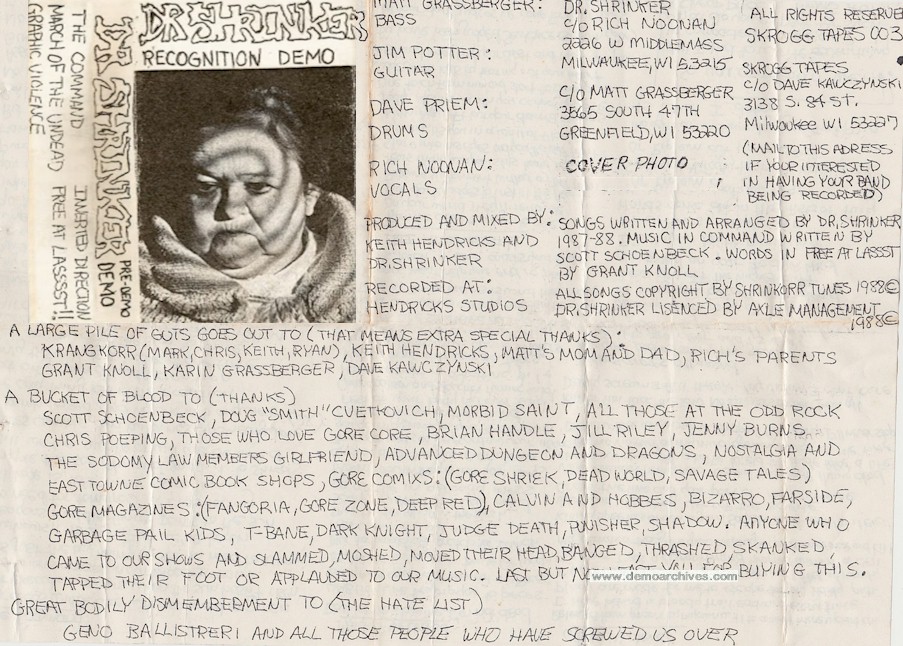 THE COMMAND
MARCH OF THE UNDEAD
GRAPHIC VIOLENCE
INVERTED DIRECTION
FREE AT LASSST!!
DR SHRINKER
PRE-DEMO
DEMO
DR. SHRINKER
RECOGNITION DEMO
MATT GRASSBERGER:
BASS
JIM POTTER:
GUITAR
DAVE PRIEM:
DRUMS
RICH NOONAN:
VOCALS
PRODUCED AND MIXED BY:
KEITH HENDRICKS AND
DR.SHRINKER
RECORDED AT:
HENDRICKS STUDIOS
DR.SHRINKER
C/O RICH NOONAN
2226 W MIDDLEMASS
MILWAUKEE, WI 53215
C/O MATT GRASSBERGER
3565 SOUTH 47TH
GREENFIELD, WI 53220
COVER PHOTO
SONGS WRITTEN AND ARRANGED BY DR.SHRINKER
1987-88. MUSIC IN COMMAND WRITTEN BY
SCOTT SCHOENBECK. WORDS IN FREE AT LASSST
BY GRANT KNOLL
ALL SONGS COPYRIGHT BY SHRINKORR TUNES 1988©
DR.SHRINKER LISENCED BY AXLE MANAGEMENT
1988©
ALL RIGHTS RESERVE
SKROGG TAPES 003
SKROGG TAPES
C/O DAVE KAWCZYNSKI
3138 S. 84 ST.
Milwaukee WI 53227
(MAIL TO THIS ADRESS
IF YOUR INTERESTED
IN HAVING YOUR BAND
BEING RECORDED)
A LARGE PILE OF GUTS GOES OUT TO (THAT MEANS EXTRA SPECIAL THANKS):
KRANGKORR (MARK, CHRIS, KEITH, RYAN), KEITH HENDRICKS, MATT'S MOM AND DAD, RICH'S PARENTS
GRANT KNOLL, KARIN GRASSBERGER, DAVE KAWCZYNSKI
A BUCKET OF BLOOD TO (THANKS)
SCOTT SCHOENBECK, DOUG "SMITH" CVETKOVICH, MORBID SAINT, ALL THOSE AT THE ODD ROCK
CHRIS POEPING, THOSE WHO LOVE GORE CORE, BRIAN HANDLE, JILL RILEY, JENNY BURNS
THE SODOMY LAW MEMBERS GIRLFRIEND, ADVANCED DUNGEON AND DRAGONS, NOSTALGIA AND
EAST TOWNE COMIC BOOK SHOPS, GORE COMIXS: (GORE SHRIEK, DEAD WORLD, SAVAGE TALES)
GORE MAGAZINES: (FANGORIA, GORE ZONE, DEEP RED), CALVIN AND HOBBES, BIZARRO, FARSIDE,
GARBAGE PAIL KIDS, T-BANE, DARK KNIGHT, JUDGE DEATH, PUNISHER, SHADOW. ANYONE WHO
CAME TO OUR SHOWS AND SLAMMED, MOSHED, MOVED THEIR HEAD, BANGED, THRASHED, SKANKED,
TAPPED THEIR FOOT OR APPLAUDED TO OUR MUSIC. LAST BUT YOU FOR BUYING THIS.
www.demoarchives.com
GREAT BODILY DISMEMBERMENT TO (THE HATE LIST)
GENO BALLISTRERI AND ALL THOSE PEOPLE WHO HAVE SCREWED US OVER